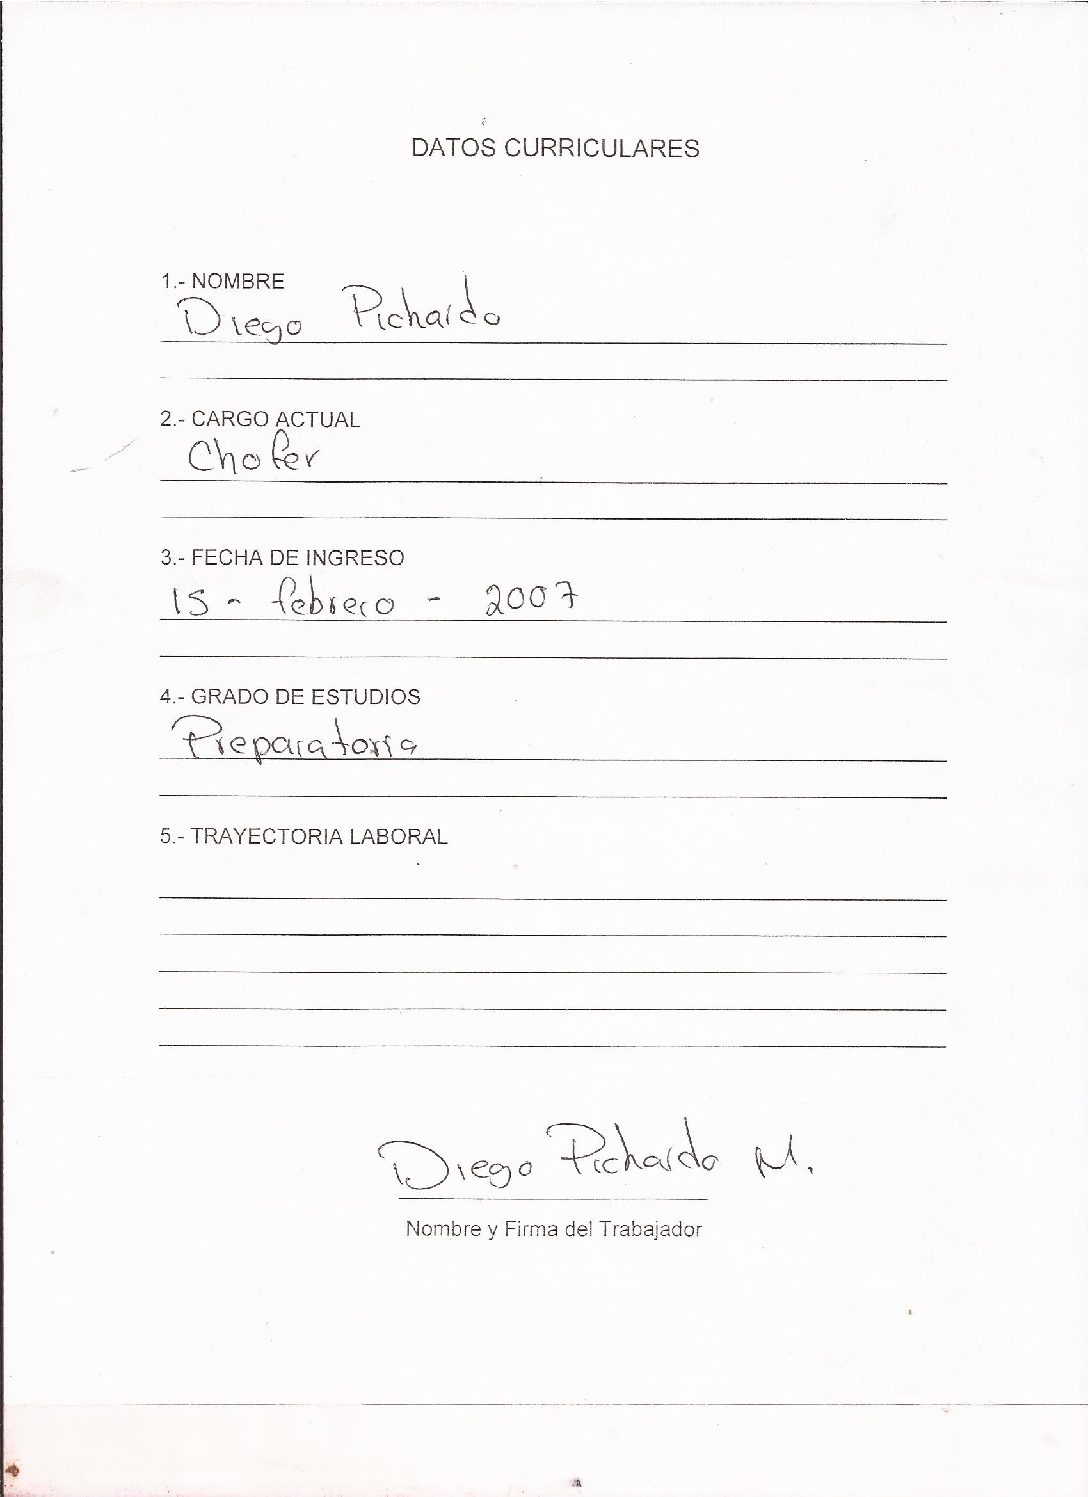 DATOS CURRICULARES
1.- NOMBRE
Diego Pichardo
2.- CARGO ACTUAL
Chofer
3.- FECHA DE INGRESO
15 - febrero - 2007
4.- GRADO DE ESTUDIOS
Preparatoria
5.- TRAYECTORIA LABORAL
Diego Pichardo M.
Nombre y Firma del Trabajador